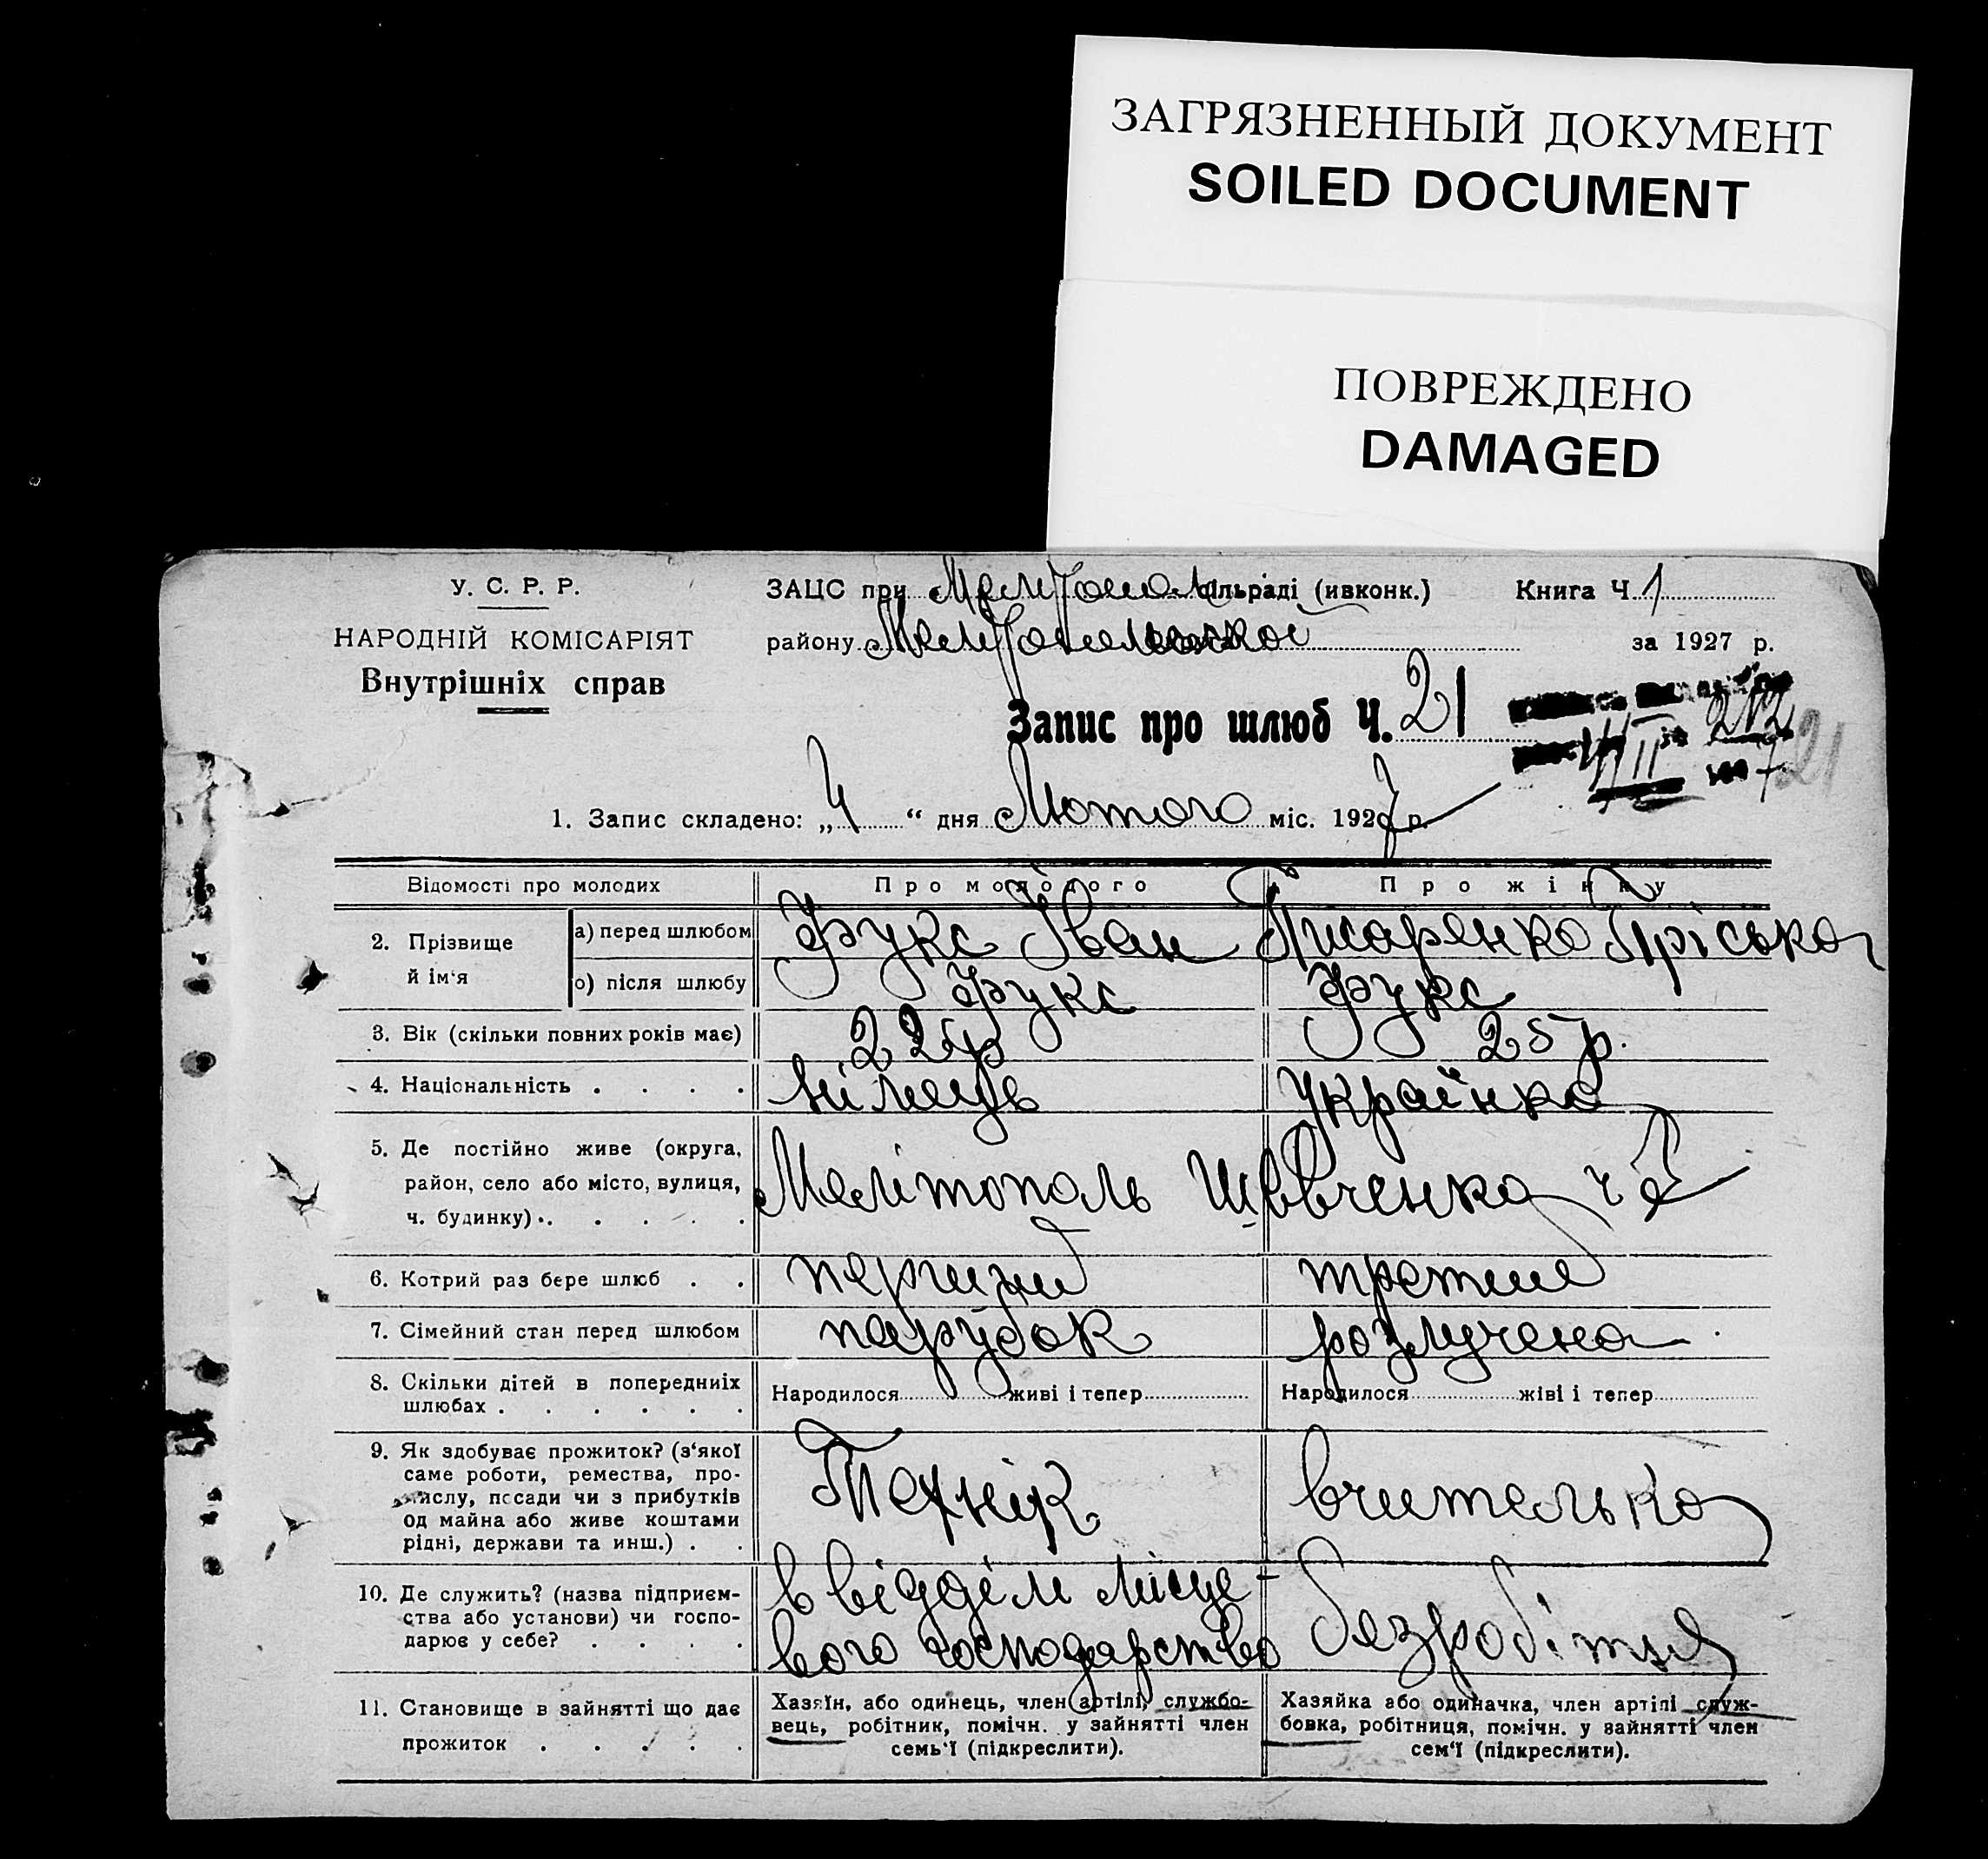 ЗАГРЯЗНЕННЫЙ ДОКУМЕНТ
SOILED DOCUMENT
ПОВРЕЖДЕНО
DAMAGED
У. С. Р. Р.
НАРОДНІЙ КОМІСАРІЯТ
Внутрішніх справ
ЗАЦС при сільраді (ивконк.) Книга Ч. 1
району за 1927 р.
Запис про шлюб Ч. 21
21
1. Запис складено: „4“ дня Лютого міс. 1927 р.
Відомості про молодих Про молодого Про жінку
2. Прізвище й ім‘я
а) перед шлюбом Фукс Іван Писаренко Пріська
о) після шлюбу Фукс Фукс
3. Вік (скільки повних років має) 22 р 25 р.
4. Національність . . . . німець Українка
5. Де постійно живе (округа,
район, село або місто, вулиця,
ч. будинку) . . . . .
Мелітополь Шевченка ч
6. Котрий раз бере шлюб . . перший третий
7. Сімейний стан перед шлюбом парубок розлучена
8. Скільки дітей в попередніх
шлюбах . . . . . .
Народилося живі і тепер Народилося жіві і тепер
9. Як здобуває прожиток? (з‘якої
саме роботи, ремества, про-
мислу, посади чи з прибутків
од майна або живе коштами
рідні, держави та инш.) . .
Технік вчителька
10. Де служить? (назва підприєм-
ства або установи) чи госпо-
дарює у себе? . . . .
в відділи місце-
вого господарства
безробітня
11. Становище в зайнятті що дає
прожиток . . . . .
Хазяїн, або одинець, член артілі, службо-
вець, робітник, помічн. у зайнятті член
семь‘ї (підкреслити).
Хазяйка або одиначка, член артілі служ-
бовка, робітниця, помічн. у зайнятті член
сем‘ї (підкреслити).